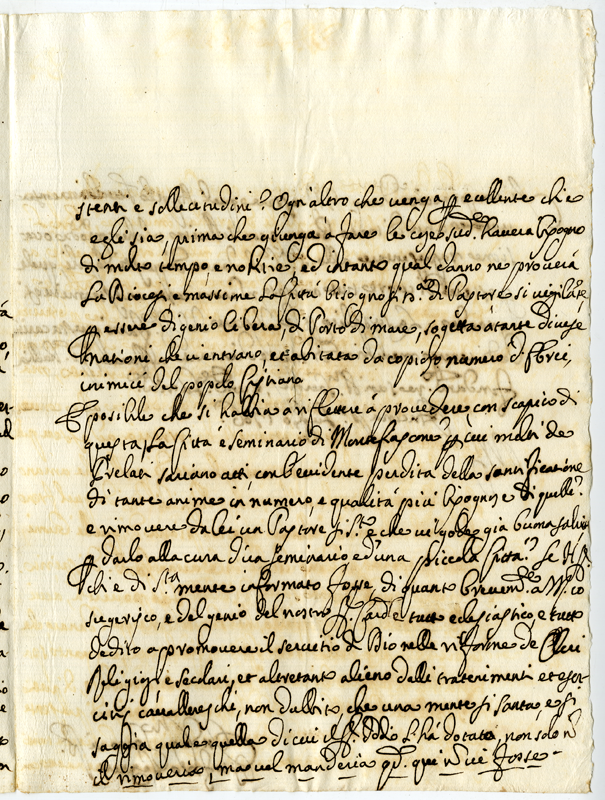 stenti e sollecitudini? Ogn'altro che venga p eccellente ch'e
egli sia, prima che giunga à fare le cose sud.e haverà bisogno
di molto tempo, e notitie, ed intanto qual danno ne proverà
La Diocesi e massime La Città bisognosiss.a di Pastore si vigilate
p essere di genio libera, di Porto di mare, sogetta à tante diverse
nationi che vi entrano, et abitata da copioso numero d'Ebrei,
inimici del popolo Cristiano
È possibile che si habbia à riflettere à provedere con scapito di
questa, La Città e seminario di Montefiascone p cui molti de
Prelati sariano atti, con l'evidente perdita della santificatione
di tante anime in numero e qualità più bisognose di quelle?
e rimovere da lei un Pastore si S.to e che vi gode già buona salute
p darlo alla cura d'un seminario e d'una piccola Città? Se
che è di S.ta mente informato fosse, di quanto brevem.te
sugerisco, e del genio del nostro S.r Card.e tutto eclesiastico, e tutto
dedito a promovere il servitio di Dio nelle riforme de Cleri
Religiosi e secolari, et altretanto alieno dalli tratenimenti et eser-
citij cavallereschi, non dubito, che una mente si santa, e si
saggia quale è quella di cui il S. Iddio L'hà dotata, non solo n
il rimoveria, ma vel manderia q.do quì n vi fosse -